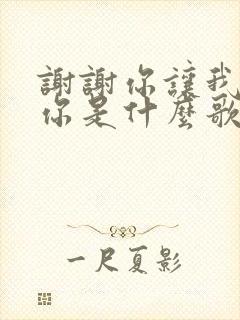 謝謝你讓我
你是什麼歌
一尺夏影